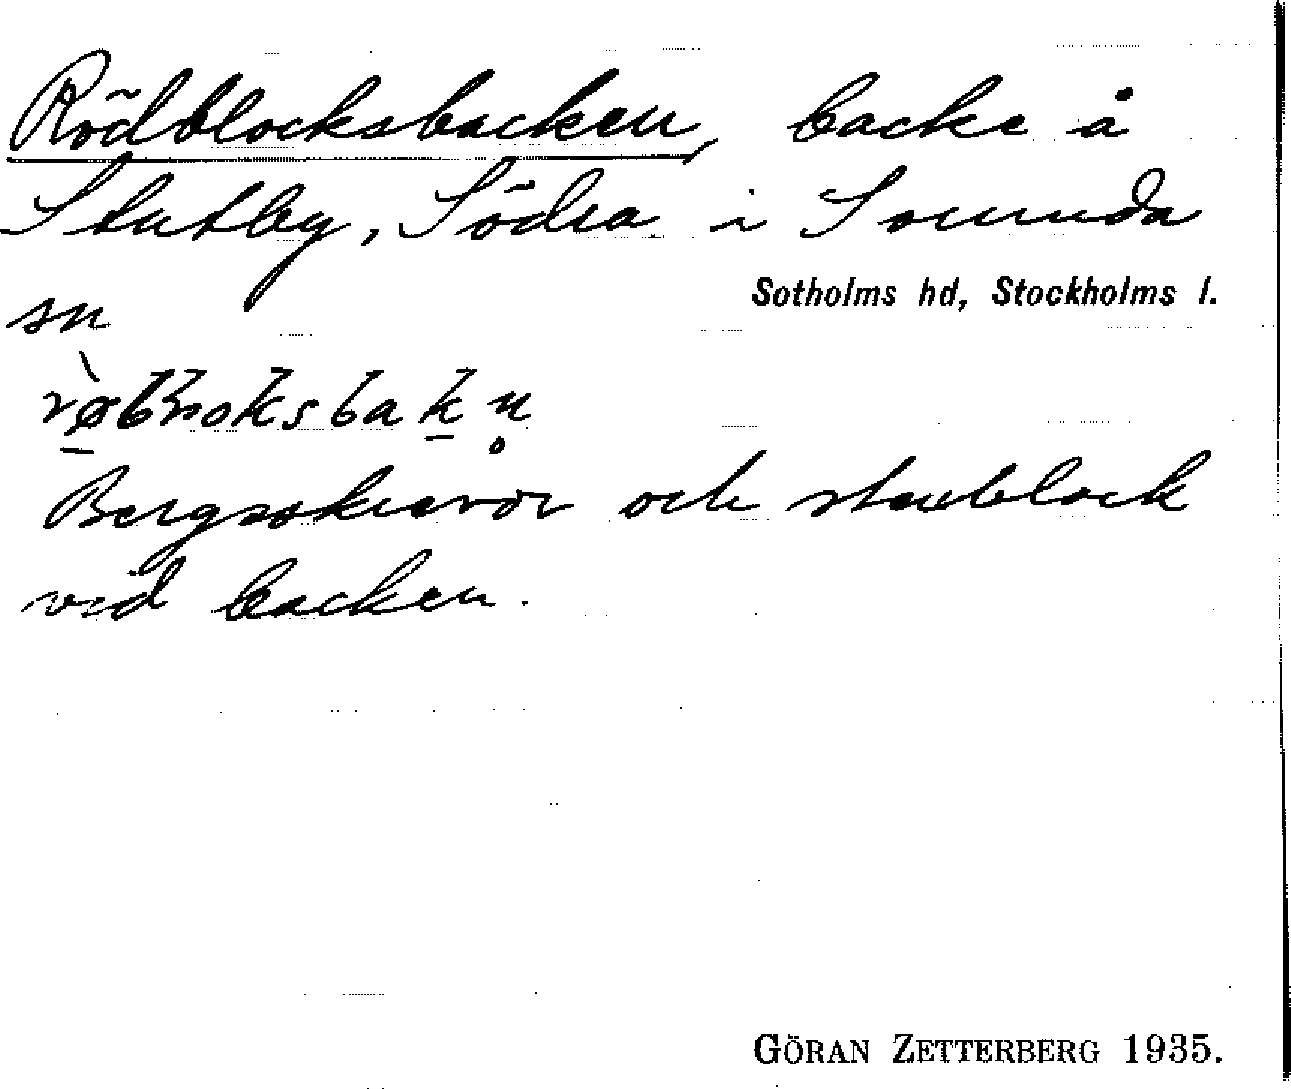 Rödblocksbacken, backe å
Stutby, Södra i Sorunda
sn
Sotholms hd, Stockholms l.
Bergsskrevor och stenblock
vid backen.
GÖRAN ZETTERBERG 1935.